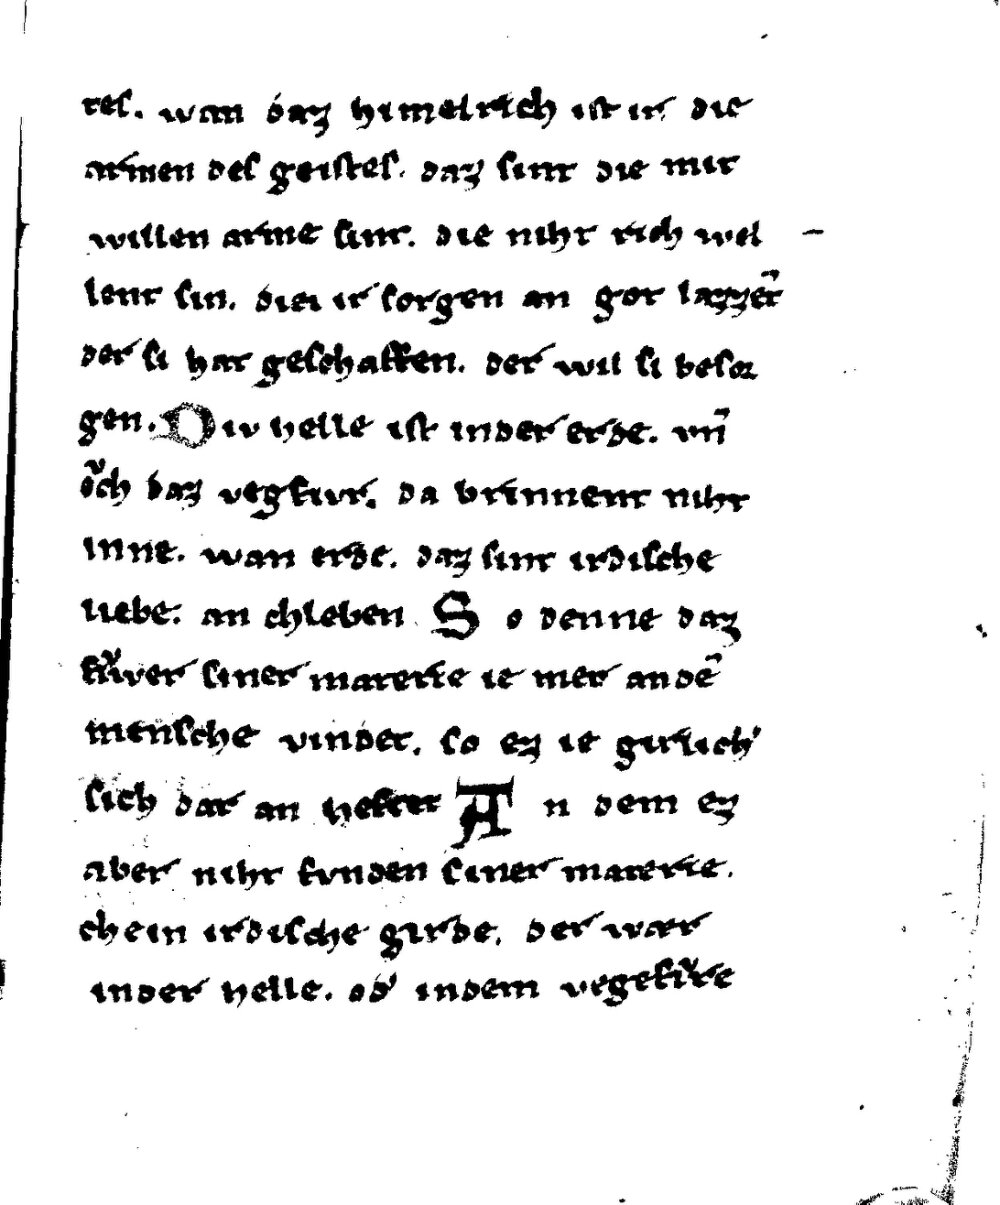 tes. wan daz himelrich ist ir die
armen des geistes. daz sint die mit
willen arme sint. die niht rich wel
lent sin. die ir sorgen an got lazzēt
der si hat geschaffen. der wil si besor
gen. Div helle ist in der erde. vn̄
oͮch daz vegfivr. da brinnent niht
inne. wan erde. daz sint irdische
liebe. an chleben So denne daz
fivͮer siner materie ie mer an dē
mensche vindet. so ez ie girlich
sich dar an heftet An dem ez
aber niht fvnden siner materie.
chein irdische girde. der wær
in der helle. od' in dem vegefivͮre